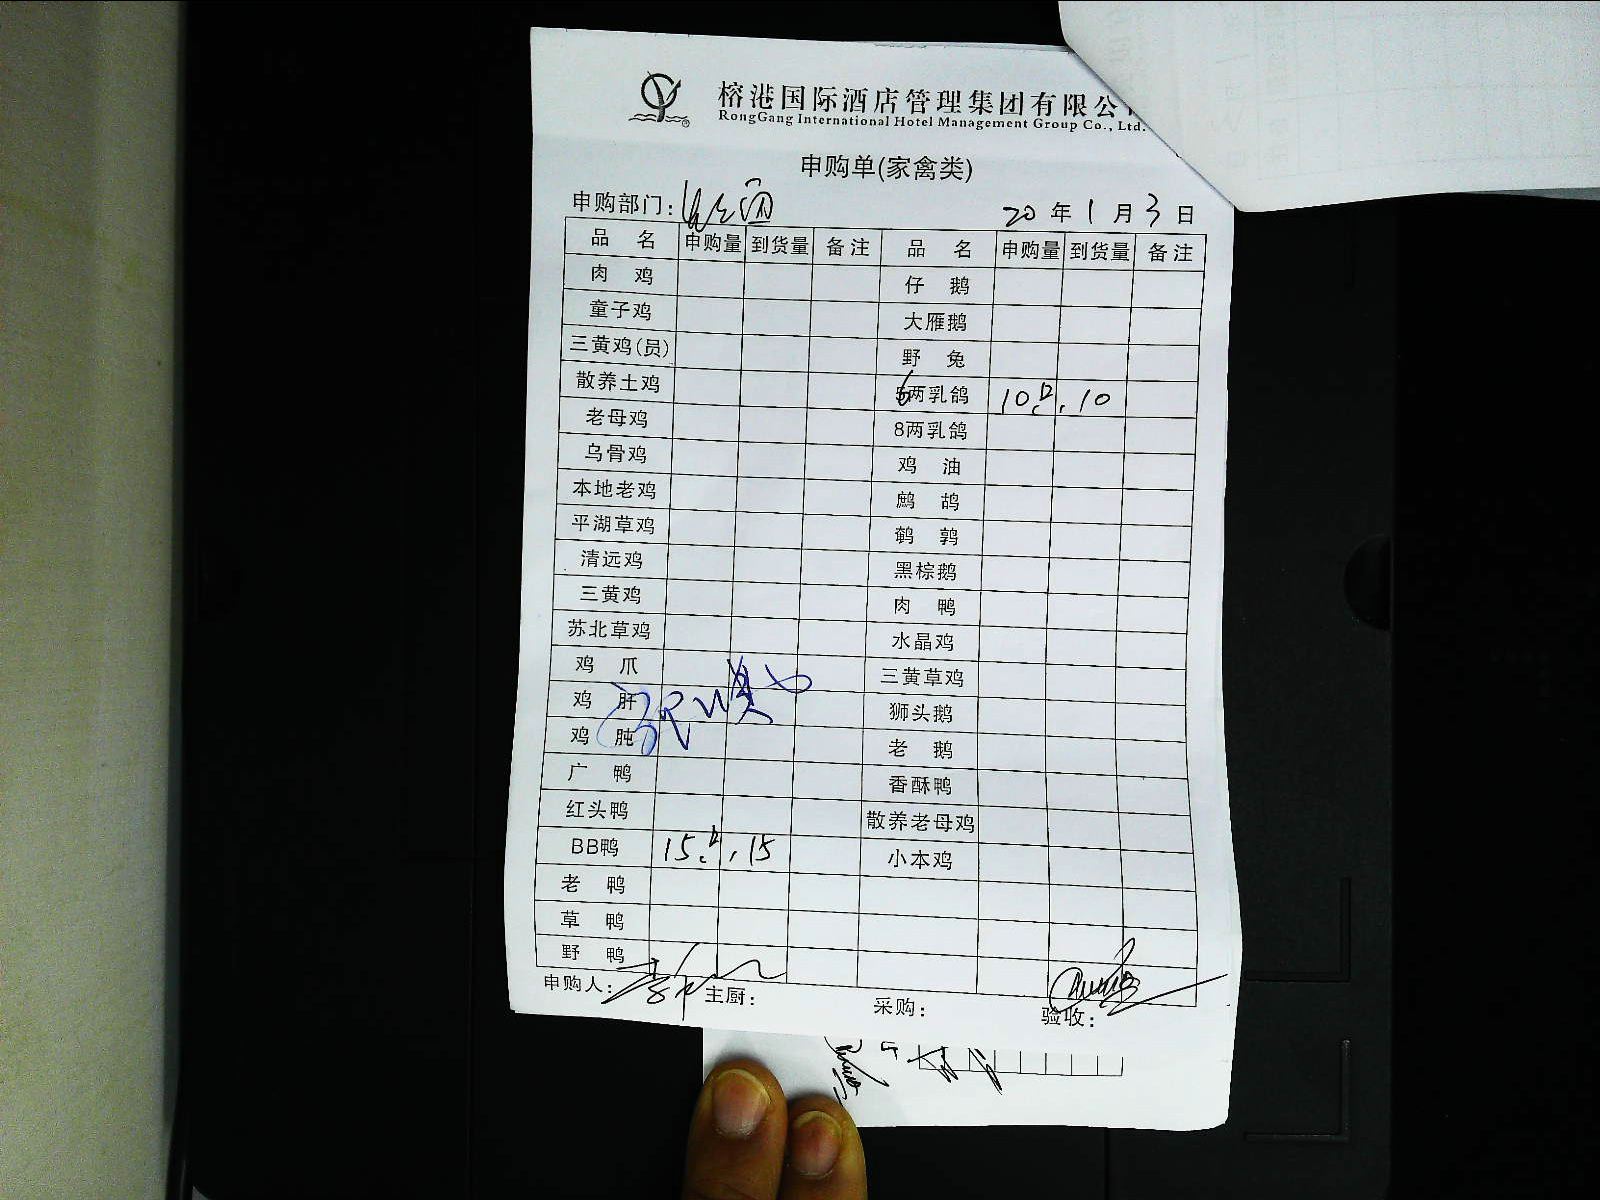 榕港国际酒店管理集团有限公
RongGang International Hotel Management Group Co., Ltd.
申购单(家禽类)
申购部门: 20 年 1 月 3 日
品 名 申购量 到货量 备注 品 名 申购量 到货量 备注
肉 鸡 仔 鹅
童子鸡 大雁鹅
三黄鸡(员) 野 兔
散养土鸡 6两乳鸽 10只 10
老母鸡 8两乳鸽
乌骨鸡 鸡 油
本地老鸡 鹧 鸪
平湖草鸡 鹌 鹑
清远鸡 黑棕鹅
三黄鸡 肉 鸭
苏北草鸡 水晶鸡
鸡 爪 三黄草鸡
鸡 肝 狮头鹅
鸡 肫 老 鹅
广 鸭 香酥鸭
红头鸭 散养老母鸡
BB鸭 15只 15 小本鸡
老 鸭
草 鸭
野 鸭
申购人: 主厨: 采购: 验收: